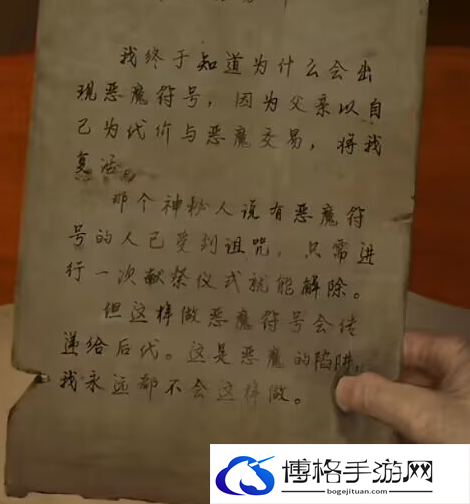 我终于知道为什么会出
现恶魔符号，因为父亲以自
己为代价与恶魔交易，将我
复活。
那个神秘人说有恶魔符
号的人已受到诅咒，只需进
行一次献祭仪式就能解除。
但这样做恶魔符号会传
递给后代。这是恶魔的陷阱，
我永远都不会这样做。
博格手游网
www.bogejituan.com